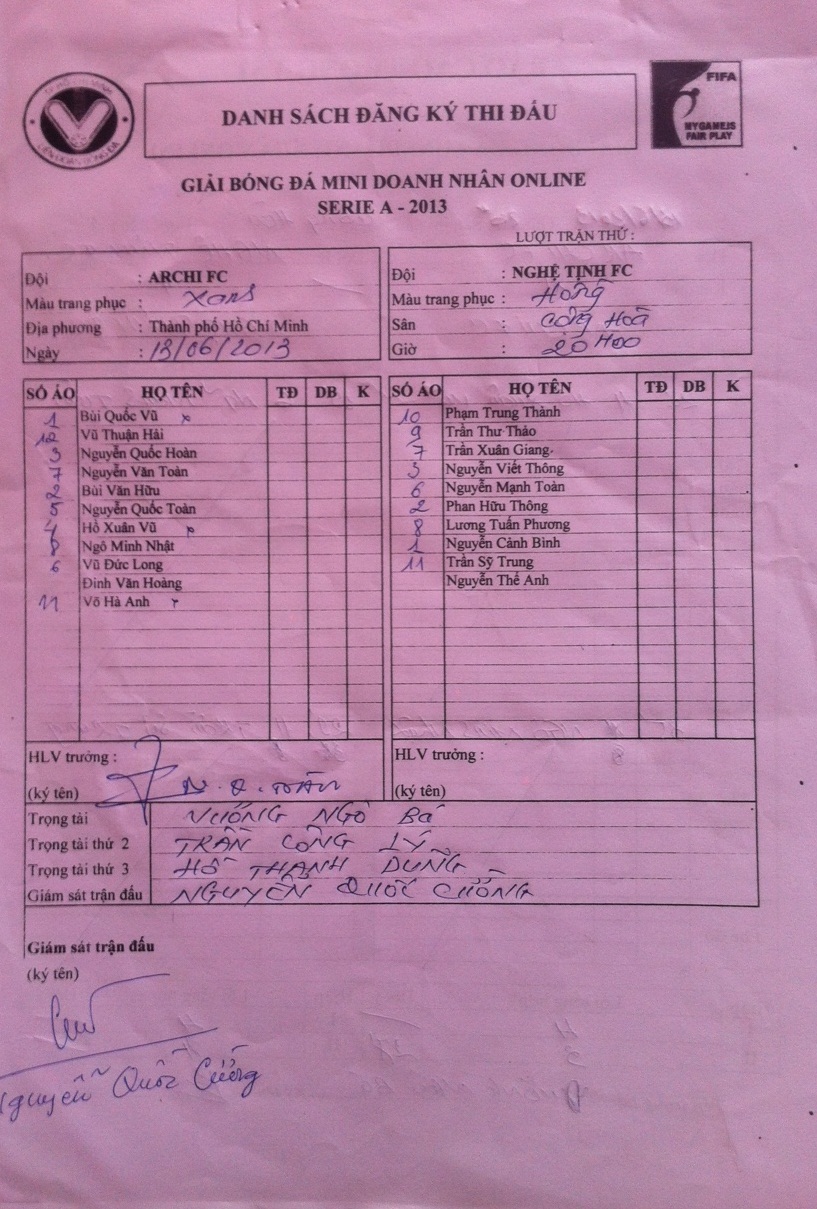 TP HỒ CHÍ MINH
LIÊN ĐOÀN BÓNG ĐÁ
DANH SÁCH ĐĂNG KÝ THI ĐẤU
FIFA
MY GAME IS
FAIR PLAY
GIẢI BÓNG ĐÁ MINI DOANH NHÂN ONLINE
SERIE A - 2013
LƯỢT TRẬN THỨ :
Đội : ARCHI FC
Màu trang phục : Xanh
Địa phương : Thành phố Hồ Chí Minh
Ngày : 13/06/2013
Đội : NGHỆ TỊNH FC
Màu trang phục : Hồng
Sân : Cộng Hoà
Giờ : 20H00
SÓ ÁO HỌ TÊN TĐ DB K
1 Bùi Quốc Vũ x
12 Vũ Thuận Hải
3 Nguyễn Quốc Hoàn
7 Nguyễn Văn Toàn
2 Bùi Văn Hữu
5 Nguyễn Quốc Toàn
4 Hồ Xuân Vũ x
8 Ngô Minh Nhật
6 Vũ Đức Long
Đinh Văn Hoàng
11 Võ Hà Anh x
SÓ ÁO HỌ TÊN TĐ DB K
10 Phạm Trung Thành
9 Trần Thư Thảo
7 Trần Xuân Giang
3 Nguyễn Viết Thông
6 Nguyễn Mạnh Toàn
2 Phan Hữu Thông
8 Lương Tuấn Phương
1 Nguyễn Cảnh Bình
11 Trần Sỹ Trung
Nguyễn Thế Anh
HLV trưởng :
(ký tên) N.Q. TOÀN
HLV trưởng :
(ký tên)
Trọng tài VƯƠNG NGỌ BÁ
Trọng tài thứ 2 TRẦN CÔNG LÝ
Trọng tài thứ 3 HỒ THANH DŨNG
Giám sát trận đấu NGUYỄN QUỐC CƯỜNG
Giám sát trận đấu
(ký tên)
Nguyễn Quốc Cường